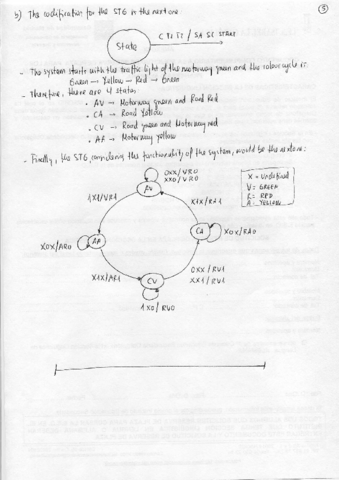 5) The codification for the STG is the next one
3
State
C TS TL / SA SC START
- The system starts with the traffic light of the motorway green and the colour cycle is:
Green → Yellow → Red → Green
- Therefore, there are 4 states
• AV → Motorway green and Road Red
• CA → Road Yellow
• CV → Road green and Motorway red
• AA → Motorway yellow
- Finally, the STG considering the functionality of the system, would be the next one:
0XX/VR0
XX0/VR0
AV
X = Undefined
V = GREEN
R = RED
A = YELLOW
1X1/VR1
X1X/RA1
AA
X0X/AR0
CA
X0X/RA0
X1X/AR1
0XX/RV1
XX1/RV1
CV
1X0/RV0